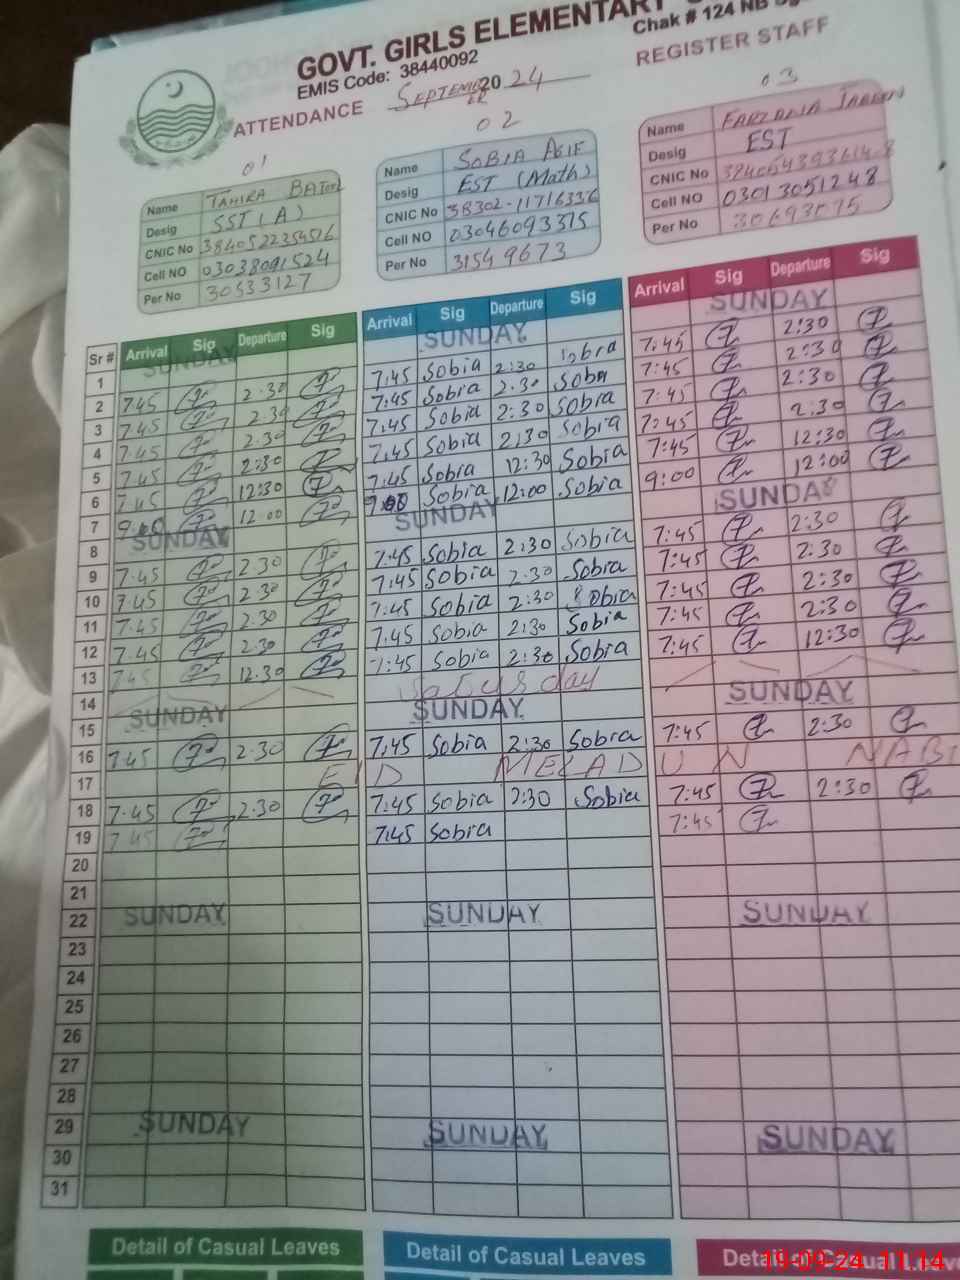 GOVT. GIRLS ELEMENTARY
Chak # 124 NB
EMIS Code: 38440092
REGISTER STAFF
ATTENDANCE SEPTEMBER 2024
01 02 03
Name TAHIRA BATOOL
Desig SST (A)
CNIC No
Cell NO 03038091524
Per No 30533127
Name SOBIA ASIF
Desig EST (Math)
CNIC No 38302-11716336
Cell NO 03046093315
Per No 31549673
Name FARZANA
Desig EST
CNIC No
Cell NO 03013051248
Per No 30693075
Sr # Arrival Sig Departure Sig Arrival Sig Departure Sig Arrival Sig Departure Sig
1 SUNDAY SUNDAY SUNDAY
2 7:45 2:30 7:45 Sobia 2:30 Sobia 7:45 2:30
3 7:45 2:30 7:45 Sobia 2:30 Sobia 7:45 2:30
4 7:45 2:30 7:45 Sobia 2:30 Sobia 7:45 2:30
5 7:45 2:30 7:45 Sobia 2:30 Sobia 7:45 2:30
6 7:45 12:30 7:45 Sobia 12:30 Sobia 7:45 12:30
7 9:00 12:00 Sobia 12:00 Sobia 9:00 12:00
8 SUNDAY SUNDAY SUNDAY
9 7:45 2:30 7:45 Sobia 2:30 Sobia 7:45 2:30
10 7:45 2:30 7:45 Sobia 2:30 Sobia 7:45 2:30
11 7:45 2:30 7:45 Sobia 2:30 Sobia 7:45 2:30
12 7:45 2:30 7:45 Sobia 2:30 Sobia 7:45 2:30
13 7:45 12:30 7:45 Sobia 2:30 Sobia 7:45 12:30
14
15 SUNDAY SUNDAY SUNDAY
16 7:45 2:30 7:45 Sobia 2:30 Sobia 7:45 2:30
17 EID MELAD UN NABI
18 7:45 2:30 7:45 Sobia 2:30 Sobia 7:45 2:30
19 7:45 7:45 Sobia 7:45
20
21
22 SUNDAY SUNDAY SUNDAY
23
24
25
26
27
28
29 SUNDAY SUNDAY SUNDAY
30
31
Detail of Casual Leaves Detail of Casual Leaves Detail of Casual Leaves
19-09-24 11:14